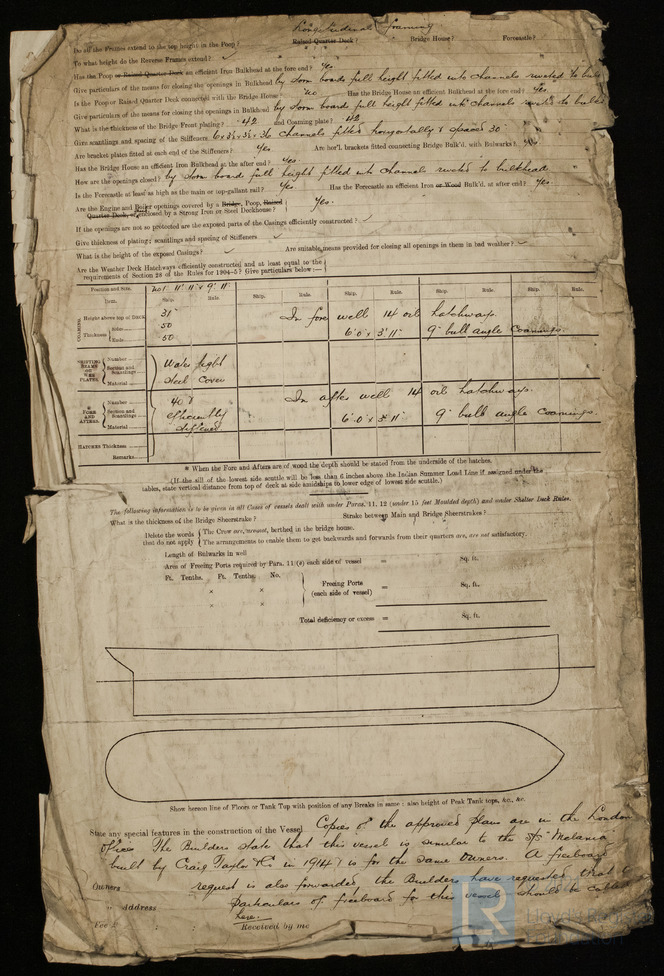 Longitudinal framing
Do all the Frames extend to the top height in the Poop? Raised Quarter Deck? Bridge House? Forecastle?
To what height do the Reverse Frames extend?
Has the Poop or Raised Quarter Deck an efficient Iron Bulkhead at the fore end? Yes
Give particulars of the means for closing the openings in Bulkhead by storm boards full height fitted into channels riveted to bulk
Is the Poop or Raised Quarter Deck connected with the Bridge House? no Has the Bridge House an efficient Bulkhead at the fore end? Yes.
Give particulars of the means for closing the openings in Bulkhead by storm board full height fitted into channels riveted to bulk
What is the thickness of the Bridge Front plating? .42 and Coaming plate? .42
Give scantlings and spacing of the Stiffeners 6 x 3½ x 3½ x .36 channels fitted horizontally & spaced 30"
Are bracket plates fitted at each end of the Stiffeners? Yes Are hor'l. brackets fitted connecting Bridge Bulk'd. with Bulwarks?
Has the Bridge House an efficient Iron Bulkhead at the after end? Yes.
How are the openings closed? by storm boards full height fitted into channels riveted to bulkhead
Is the Forecastle at least as high as the main or top-gallant rail? Yes Has the Forecastle an efficient Iron or Wood Bulk'd. at after end? Yes.
Are the Engine and Boiler openings covered by a Bridge, Poop, Raised
Quarter Deck, or enclosed by a Strong Iron or Steel Deckhouse? Yes.
If the openings are not so protected are the exposed parts of the Casings efficiently constructed?
Give thickness of plating; scantlings and spacing of Stiffeners
What is the height of the exposed Casings? Are suitable means provided for closing all openings in them in bad weather?
Are the Weather Deck Hatchways efficiently constructed and at least equal to the
requirements of Section 28 of the Rules for 1904-5? Give particulars below:—
Position and Size. No 1. 11'. 11" x 9'. 11"
Item. Ship. Rule. Ship. Rule. Ship. Rule. Ship. Rule.
COAMING Height above top of Deck 31" In fore well 14 oil hatchways.
Thickness Sides 50 6'. 0" x 3'. 11" 9" bulb angle coamings.
Ends 50
SHIFTING BEAMS OR WEB PLATES. Number
Section and Scantlings Water tight
Material Steel Cover
* FORE AND AFTERS. Number In after well 14 oil hatchways.
Section and Scantlings efficiently 6'. 0" x 3'. 11" 9" bulb angle coamings.
Material stiffened
HATCHES Thickness
Remarks
* When the Fore and Afters are of wood the depth should be stated from the underside of the hatches.
(If the sill of the lowest side scuttle will be less than 6 inches above the Indian Summer Load Line if assigned under the
tables, state vertical distance from top of deck at side amidships to lower edge of lowest side scuttle.)
The following information is to be given in all Cases of vessels dealt with under Paras. 11, 12 (under 15 feet Moulded depth) and under Shelter Deck Rules.
What is the thickness of the Bridge Sheerstrake? Strake between Main and Bridge Sheerstrakes?
Delete the words The Crew are, are not, berthed in the bridge house.
that do not apply The arrangements to enable them to get backwards and forwards from their quarters are, are not satisfactory.
Length of Bulwarks in well
Area of Freeing Ports required by Para. 11 (e) each side of vessel = Sq. ft.
Ft. Tenths. Ft. Tenths. No.
× Freeing Ports = Sq. ft.
× (each side of vessel)
Total deficiency or excess = Sq. ft.
Show hereon line of Floors or Tank Top with position of any Breaks in same: also height of Peak Tank tops, &c., &c.
State any special features in the construction of the Vessel Copies of the approved plans are in the London
Office. The Builders state that this vessel is similar to the S/S "Melania"
built by Craig Taylor & Co in 1914 & is for the same owners. A freeboard
Owners request is also forwarded, the Builders have requested that
Address particulars of freeboard for this vessel should be cabled
Fee £ here.
Received by me
LR
Lloyd's Register
Foundation